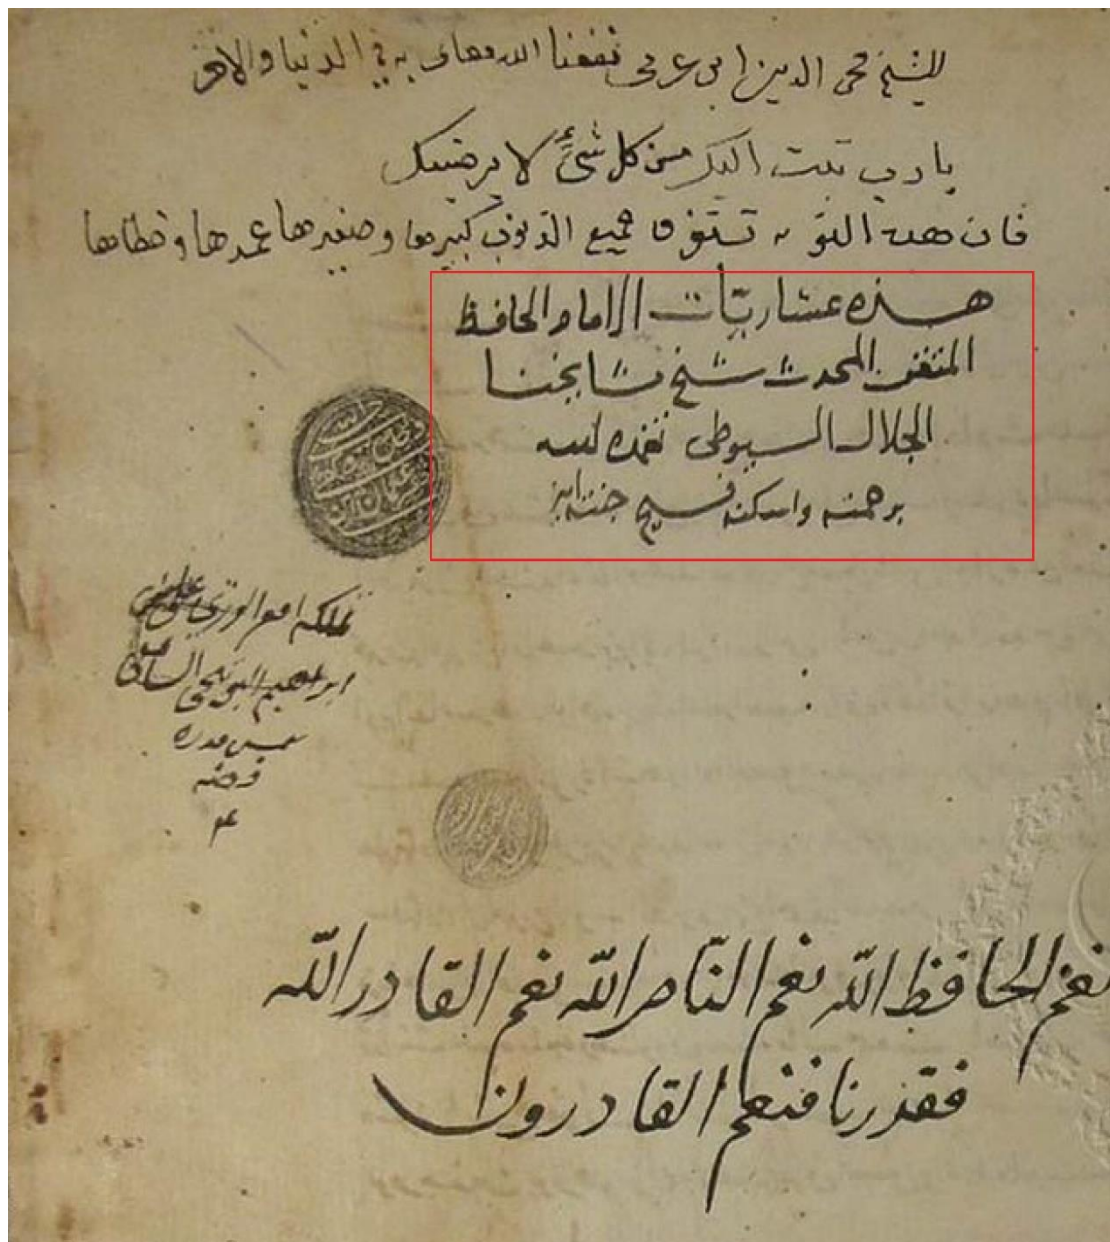 للشيخ محي الدين ابن عربي نفعنا الله تعالى به في الدنيا والاخرة
يا رب تبت اليك من كل شئ لا يرضيك
فان هذه التوبه تستغرق جميع الذنوب كبيرها وصغيرها عمدها وخطاها
هذه عشاريات الامام الحافظ
المتقن المحدث شيخ مشايخنا
الجلال السيوطي تغمده الله
برحمته واسكنه فسيح جنته
تملكه افقر الورى
ابراهيم
نعم الحافظ الله نعم الناصر الله نعم القادر الله
فقدرنا فنعم القادرون